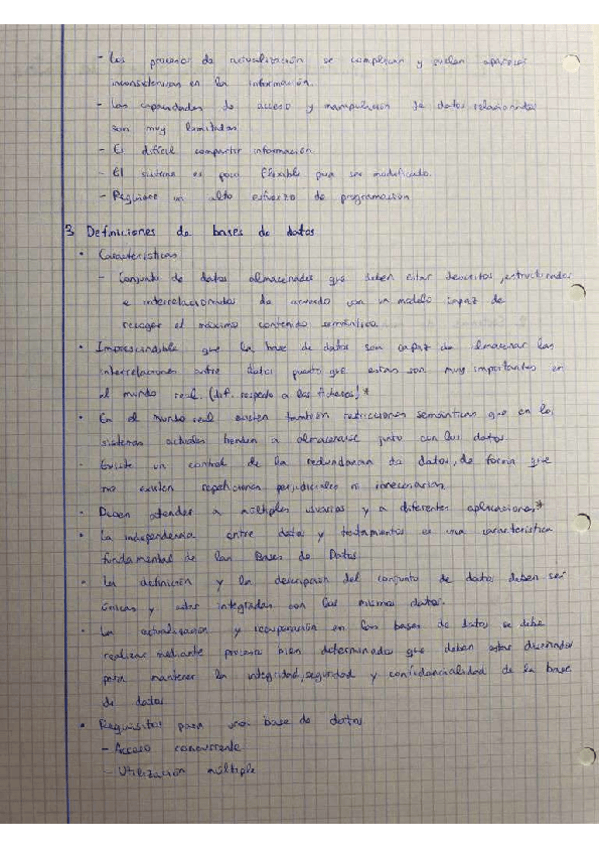 - Los procesos de actualización se complican y suelen aparecer
inconsistencias en la información.
- Las capacidades de acceso y manipulación de datos relacionados
son muy limitadas
- Es difícil compartir información
- El sistema es poco flexible para ser modificado.
- Requiere un alto esfuerzo de programación
3 Definiciones de bases de datos
• Características
- Conjunto de datos almacenados que deben estar descritos, estructurados
e interrelacionados de acuerdo con un modelo capaz de
recoger el máximo contenido semántico
• Imprescindible que la base de datos sea capaz de almacenar las
interrelaciones entre datos puesto que estas son muy importantes en
el mundo real. (dif. respecto a los ficheros) *
• En el mundo real existen también restricciones semánticas que en los
sistemas actuales tienden a almacenarse junto con los datos.
• Existe un control de la redundancia de datos, de forma que
no existen repeticiones perjudiciales ni innecesarias.
• Deben atender a múltiples usuarios y a diferentes aplicaciones *
• La independencia entre datos y tratamientos es una característica
fundamental de las Bases de Datos
• La definición y la descripción del conjunto de datos deben ser
únicas y estar integradas con los mismos datos.
• La actualización y recuperación en las bases de datos se debe
realizar mediante procesos bien determinados que deben estar diseñados
para mantener la integridad, seguridad y confidencialidad de la base
de datos
• Requisitos para una base de datos
- Acceso concurrente
- Utilización múltiple